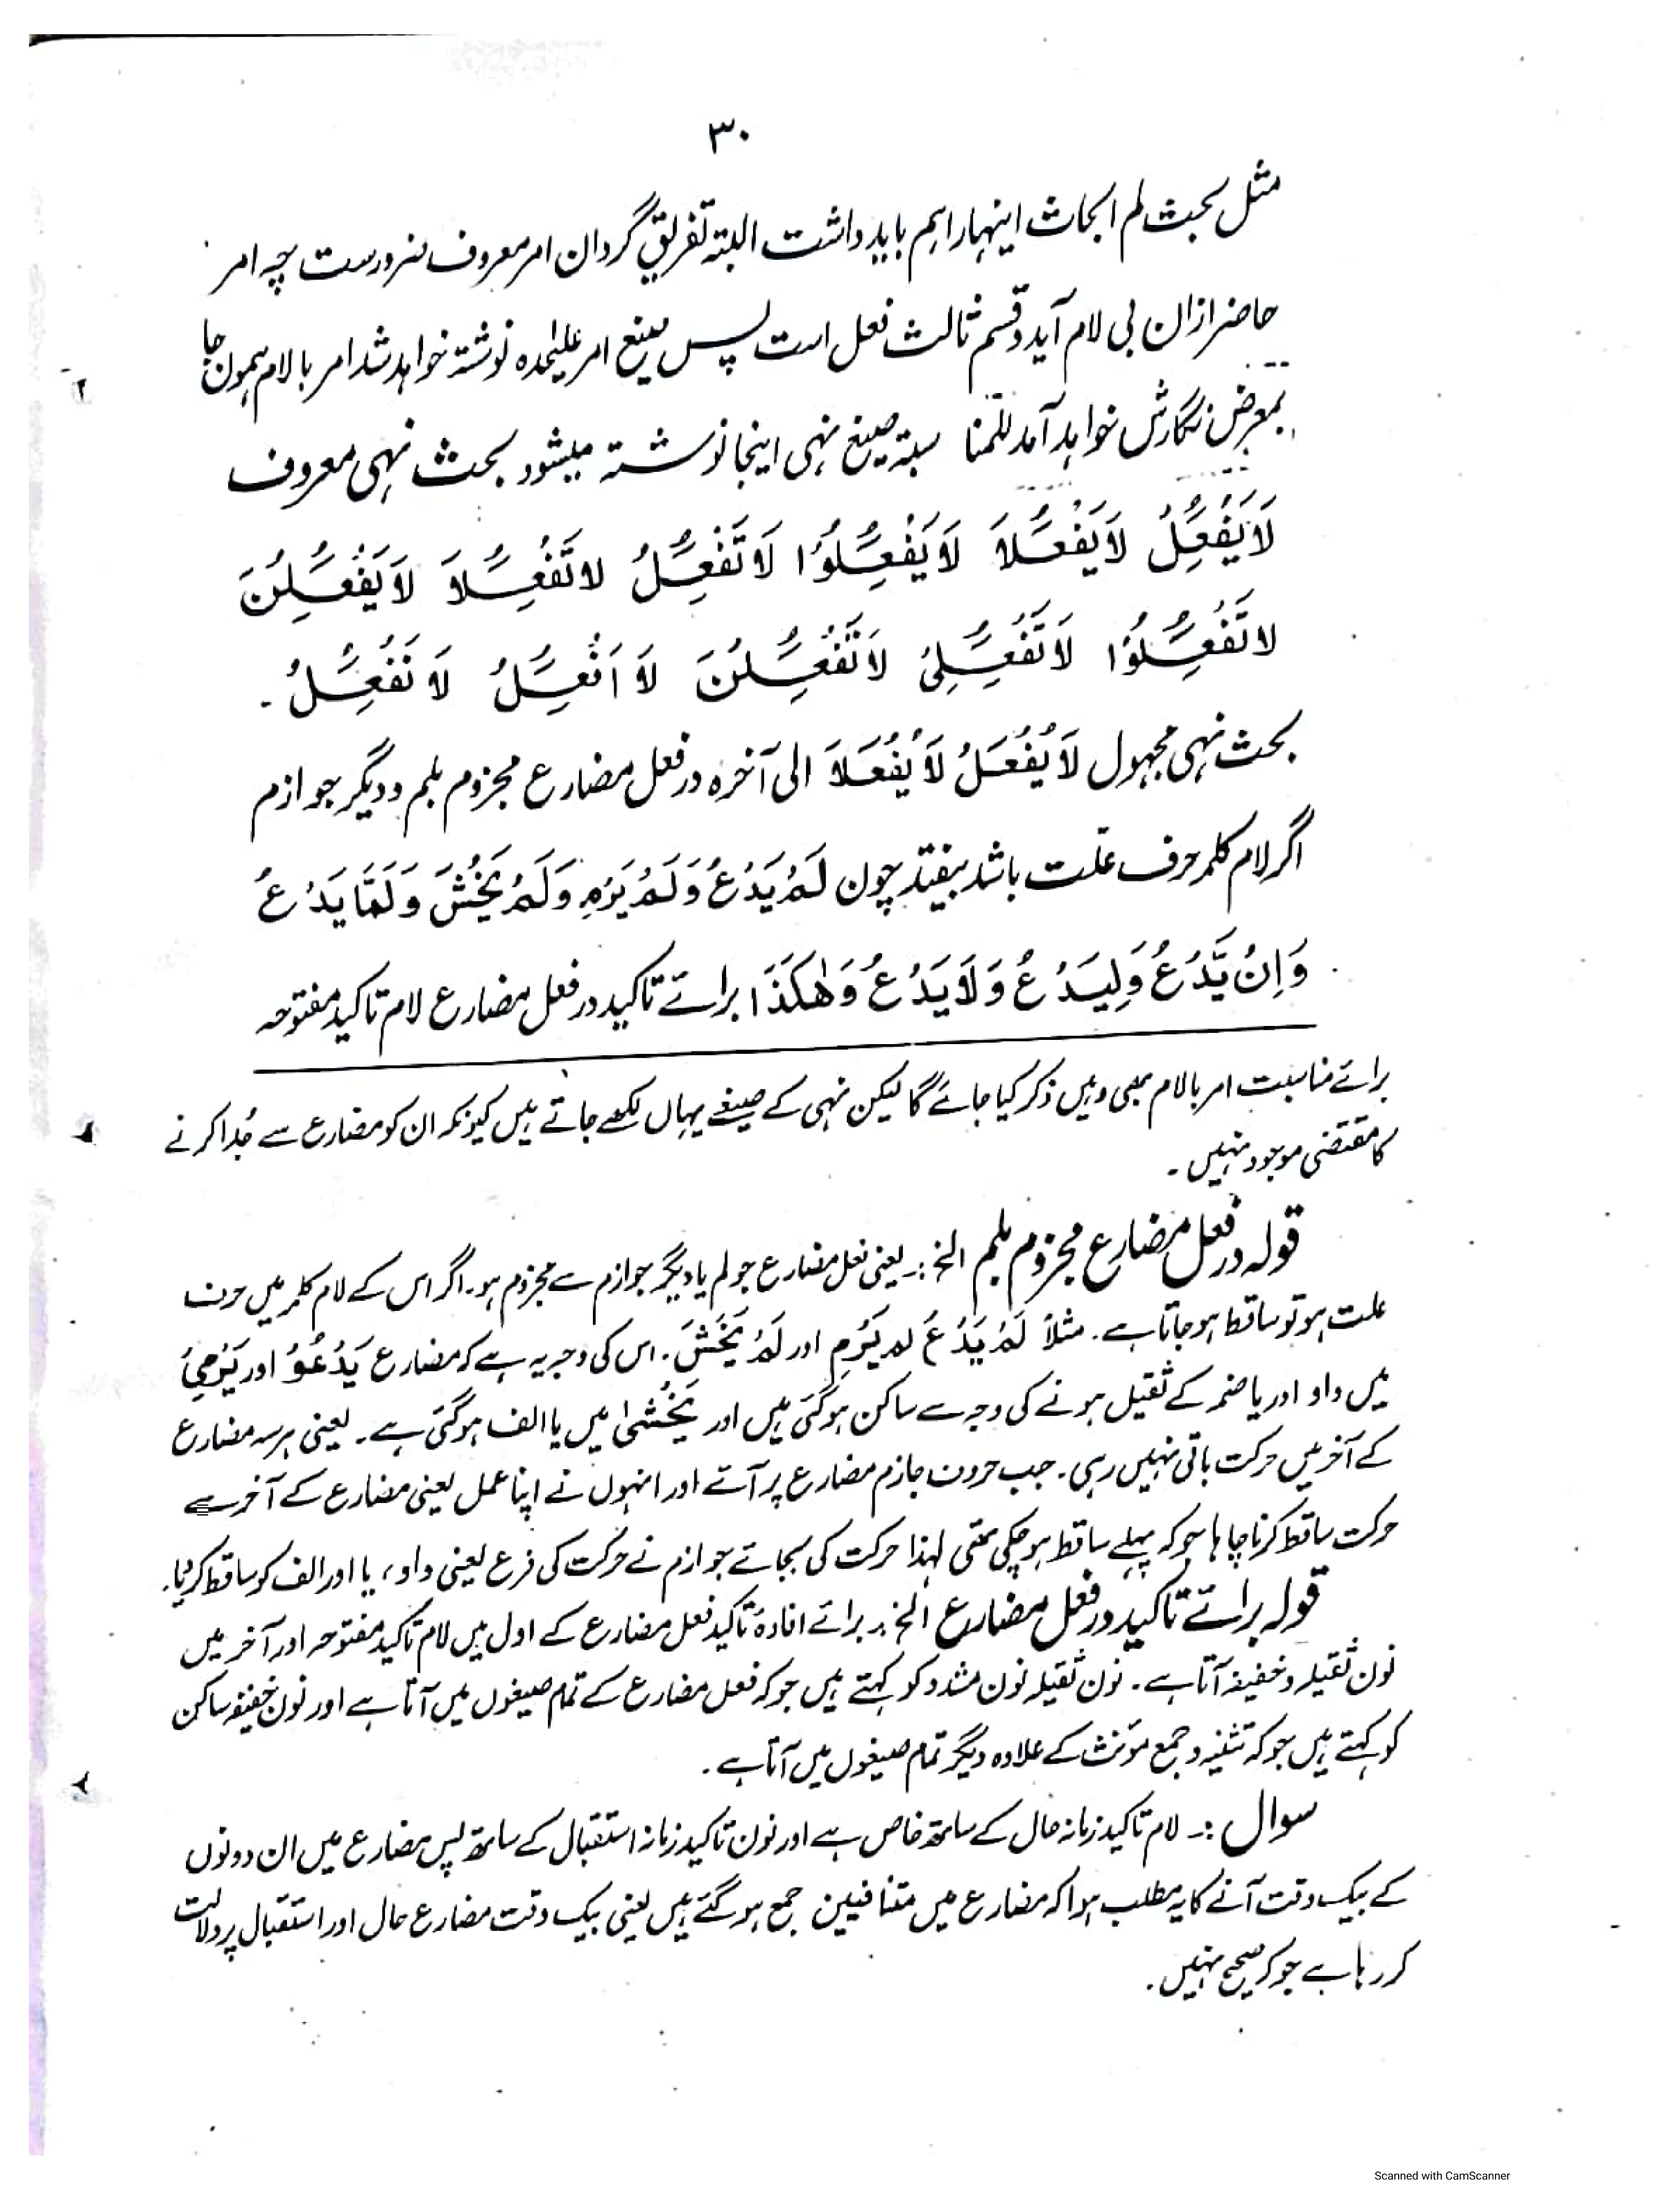 ۳۰
مثل بحث لم ابحاث اینہارا ہم باید داشت البتہ تفریق گردان امر معروف ضرورست چہ امر
حاضر ازان بی لام آید و قسم ثالث فعل است پس صیغ امر علیٰحدہ نوشتہ خواہد شد امر بالام ہمون جا
بمعرض نگارش خواہد آمد للمناسبتہ صیغ نہی اینجا نوشتہ میشود بحث نہی معروف
لَا یَفْعَِلُْ لَا یَفْعَِلَا لَا یَفْعَِلُوْا لَا تَفْعَِلُْ لَا تَفْعَِلَا لَا یَفْعَِلْنَ
لَا تَفْعَِلُوْا لَا تَفْعَِلِیْ لَا تَفْعَِلْنَ لَا اَفْعَِلْ لَا نَفْعَِلْ ۔
بحث نہی مجہول لَا یُفْعَلْ لَا یُفْعَلَا الی آخرہ در فعل مضارع مجزوم بلم و دیگر جوازم
اگر لام کلمہ حرف علّت باشد بیفتد چون لَمْ یَدْعُ وَلَمْ یَرْمِ وَلَمْ یَخْشَ وَلَمَّا یَدْعُ
وَاِنْ یَّدْعُ وَلِیَدْعُ وَلَا یَدْعُ وَھٰکَذَا برائے تاکید در فعل مضارع لام تاکید مفتوحہ
برائے مناسبت امر بالام بھی وہیں ذکر کیا جائے گا لیکن نہی کے صیغے یہاں لکھے جاتے ہیں کیونکہ ان کو مضارع سے جُدا کرنے
کا مقتضی موجود نہیں ۔
قولہ در فعل مضارع مجزوم بلم الخ :۔ یعنی فعل مضارع جو لم یا دیگر جوازم سے مجزوم ہو۔ اگر اس کے لام کلمہ میں حرف
علت ہو تو ساقط ہو جاتا ہے۔ مثلاً لَمْ یَدْعُ لم یَرْمِ اور لَمْ یَخْشَ۔ اس کی وجہ یہ ہے کہ مضارع یَدْعُوْ اور یَرْمِیْ
میں واو اور یا ضمہ کے ثقیل ہونے کی وجہ سے ساکن ہو گئی ہیں اور یَخْشٰی میں یا الف ہو گئی ہے۔ یعنی ہر سہ مضارع
کے آخر میں حرکت باقی نہیں رہی۔ جب حروف جازم مضارع پر آتے اور انہوں نے اپنا عمل یعنی مضارع کے آخر سے
حرکت ساقط کرنا چاہا جو کہ پہلے ساقط ہو چکی تھی لہذا حرکت کی بجائے جوازم نے حرکت کی فرع یعنی واو، یا اور الف کو ساقط کر دیا۔
قولہ برائے تاکید در فعل مضارع الخ :۔ برائے افادۂ تاکید فعل مضارع کے اول میں لام تاکید مفتوحہ اور آخر میں
نون ثقیلہ و خفیفہ آتا ہے۔ نون ثقیلہ نون مشدد کو کہتے ہیں جو کہ فعل مضارع کے تمام صیغوں میں آتا ہے اور نون خفیفہ ساکن
کو کہتے ہیں جو کہ تثنیہ و جمع مؤنث کے علاوہ دیگر تمام صیغوں میں آتا ہے۔
سوال :۔ لام تاکید زمانہ حال کے ساتھ خاص ہے اور نون تاکید زمانہ استقبال کے ساتھ پس مضارع میں ان دونوں
کے بیک وقت آنے کا یہ مطلب ہوا کہ مضارع میں متنافیین جمع ہو گئے ہیں یعنی بیک وقت مضارع حال اور استقبال پر دلالت
کر رہا ہے جو کہ صحیح نہیں۔
Scanned with CamScanner